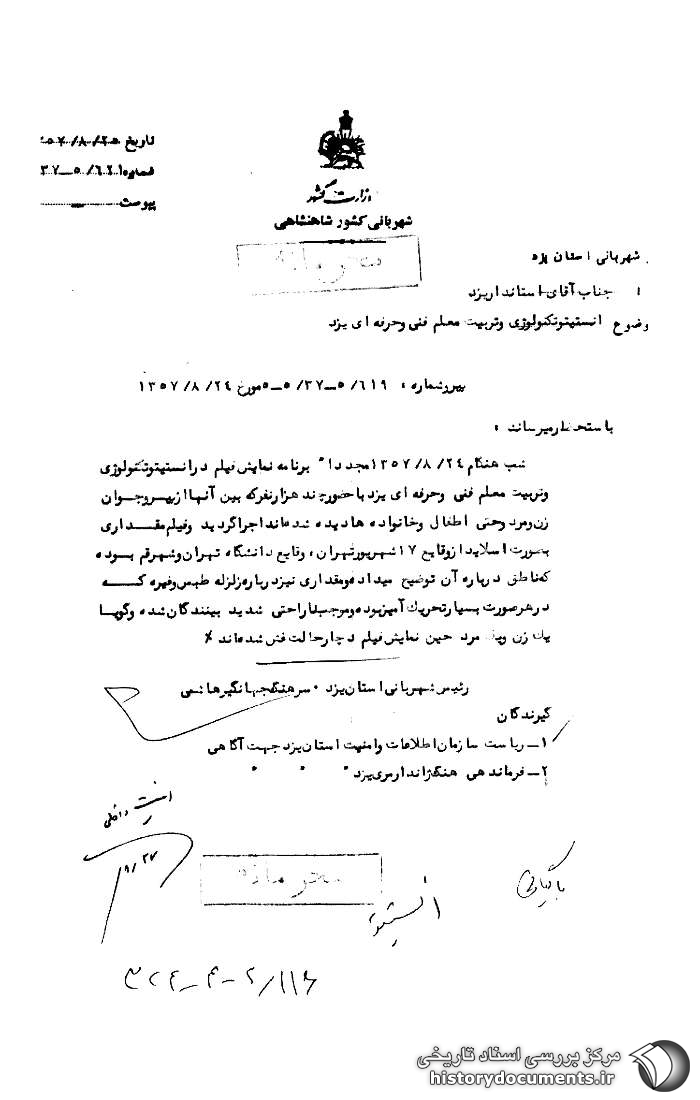 تاریخ ۲۵/۸/۵۷
شماره ۵/۶۲۱-۳۷
پیوست
وزارت کشور
شهربانی کشور شاهنشاهی
محرمانه
شهربانی استان یزد
جناب آقای استاندار یزد
وضوع انستیتو تکنولوژی و تربیت معلم فنی و حرفه ای یزد
پیرو شماره : ۵/۶۱۹-۵/۳۷-۵ مورخ ۱۳۵۷/۸/۲۴
باستحضار میرساند :
شب هنگام ۱۳۵۷/۸/۲۴ مجددا" برنامه نمایش فیلم در انستیتو تکنولوژی
و تربیت معلم فنی و حرفه ای یزد با حضور چند هزار نفر که بین آنها از پیر و جوان
زن و مرد و حتی اطفال و خانواده ها دیده شده‌اند اجرا گردید و فیلم مقداری
بصورت اسلاید از وقایع ۱۷ شهریور تهران ، وقایع دانشگاه تهران و شهر قم بوده
که ناطق درباره آن توضیح میداده و مقداری نیز درباره زلزله طبس و غیره که
در هر صورت بسیار تحریک آمیز بوده و موجب ناراحتی شدید بینندگان شده و گویا
یک زن و یک مرد حین نمایش فیلم دچار حالت غش شده‌اند ٪
رئیس شهربانی استان یزد . سرهنگ جهانگیر هاشمی
گیرندگان
۱- ریاست سازمان اطلاعات و امنیت استان یزد جهت آگاهی
۲- فرماندهی هنگ ژاندارمری یزد " " "
امنیت داخلی
۸/۲۷
محرمانه
بایگانی
انستیتو
۳۲۴-۴-۲/۱۱۶
مرکز بررسی اسناد تاریخی
historydocuments.ir